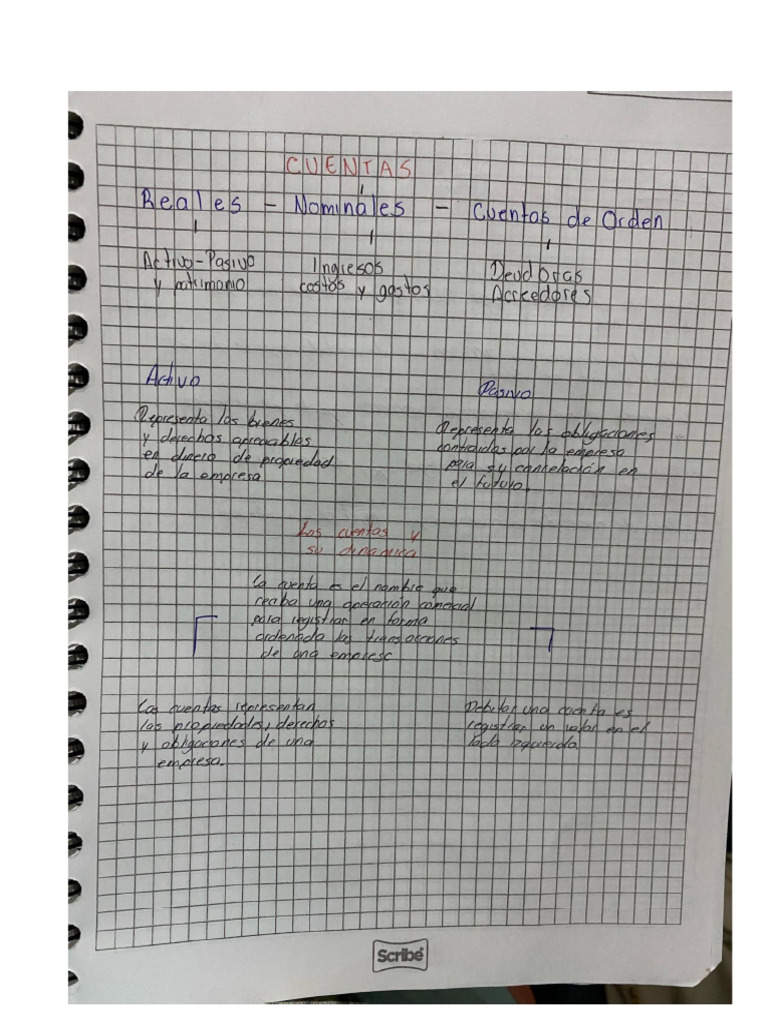 CUENTAS
Reales - Nominales - Cuentas de Orden
Activo-Pasivo
y patrimonio
Ingresos
costos y gastos
Deudoras
Acreedores
Activo
Representa los bienes
y derechos apreciables
en dinero de propiedad
de la empresa
Pasivo
Representa las obligaciones
contraidas por la empresa
para su cancelación en
el futuro.
Las cuentas y
su dinamica
La cuenta es el nombre que
reciba una operación comercial
para registrar en forma
ordenada las transacciones
de una empresa
Las cuentas representan
las propiedades, derechos
y obligaciones de una
empresa.
Debitar una cuenta es
registrar un valor en el
lado izquierda
Scribe